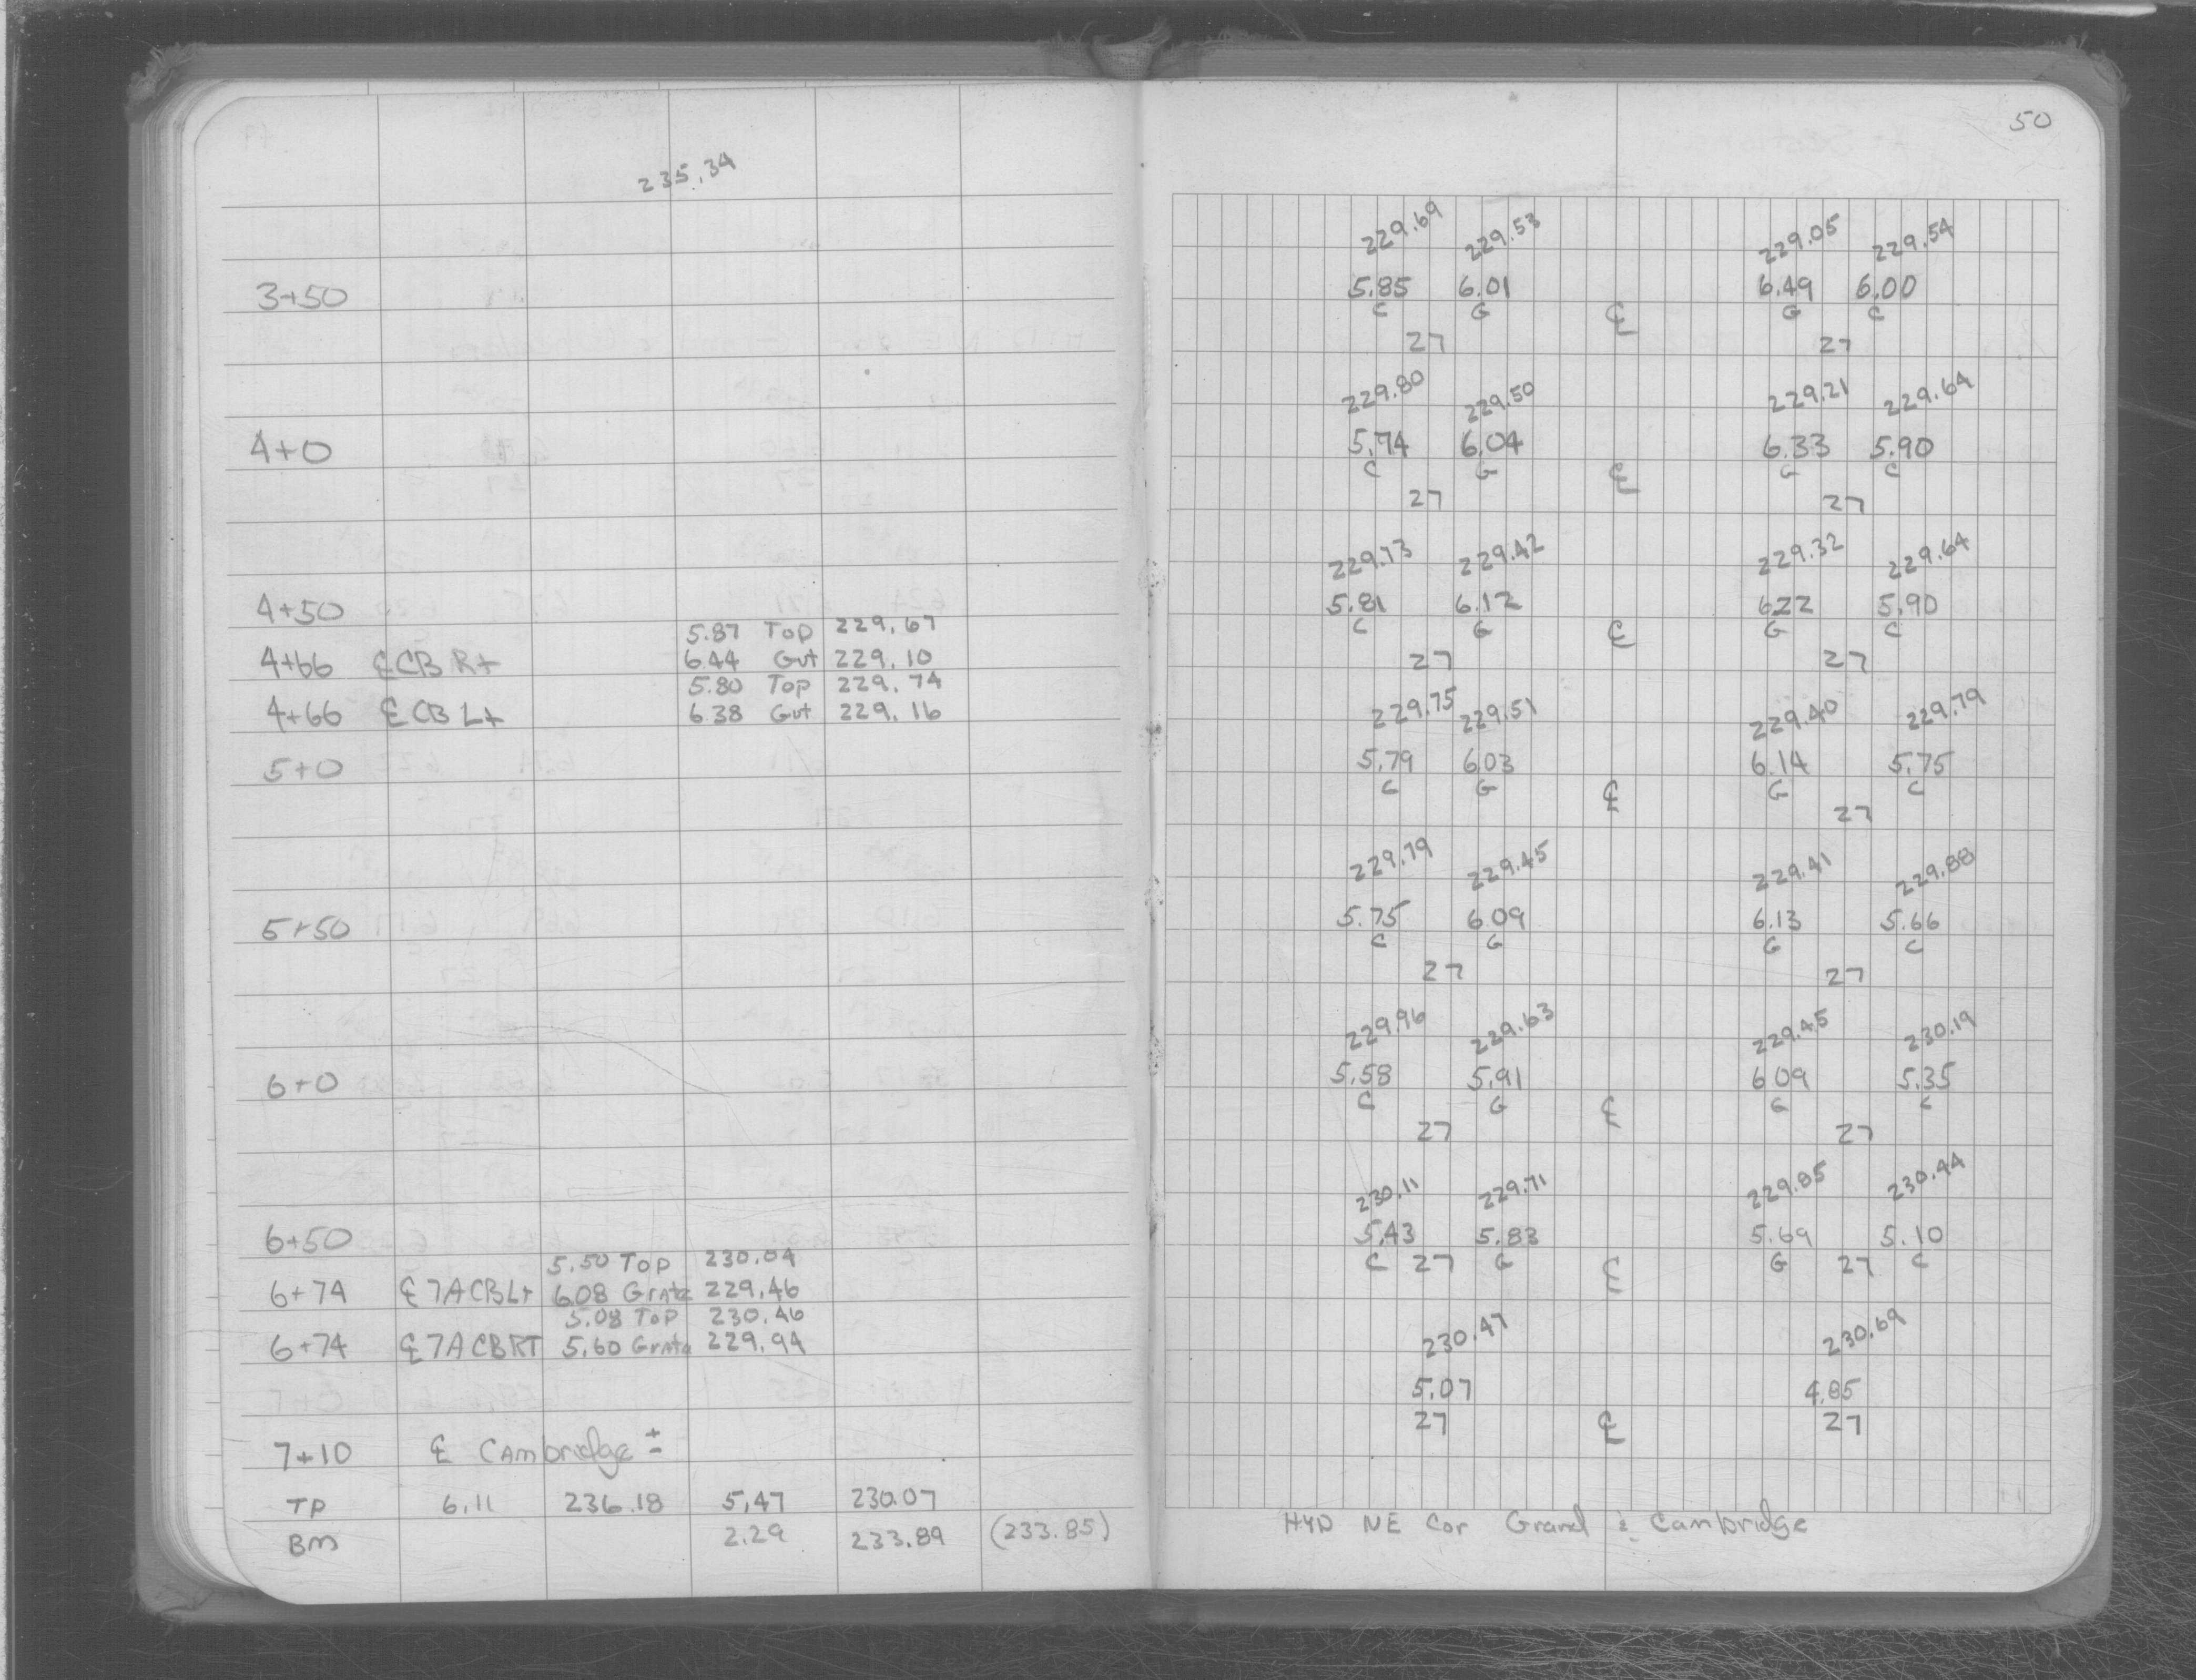 50
235.34
229.69 229.53 229.05 229.54
3+50 5.85 6.01 6.49 6.00
C G ℄ G C
27 27
229.80 229.50 229.21 229.64
4+0 5.74 6.04 6.33 5.90
C G ℄ G C
27 27
229.73 229.42 229.32 229.64
4+50 5.81 6.12 6.22 5.90
C G ℄ G C
5.87 Top 229.67
4+66 ℄ CB Rt 6.44 Gut 229.10
27 27
5.80 Top 229.74
4+66 ℄ CB Lt 6.38 Gut 229.16
229.75 229.51 229.40 229.79
5+0 5.79 6.03 6.14 5.75
C G ℄ G C
27
229.79 229.45 229.41 229.88
5+50 5.75 6.09 6.13 5.66
C G G C
27 27
229.96 229.63 229.45 230.19
6+0 5.58 5.91 6.09 5.35
C G ℄ G C
27 27
230.11 229.71 229.85 230.44
6+50 5.43 5.83 5.69 5.10
C 27 G ℄ G 27 C
5.50 Top 230.04
6+74 ℄ 7A CB Lt 6.08 Grate 229.46
5.08 Top 230.46
6+74 ℄ 7A CB RT 5.60 Grate 229.94
230.47 230.69
5.07 4.85
27 ℄ 27
7+10 ℄ Cambridge ±
TP 6.11 236.18 5.47 230.07
BM 2.29 233.89 (233.85) HYD NE Cor Grand & Cambridge